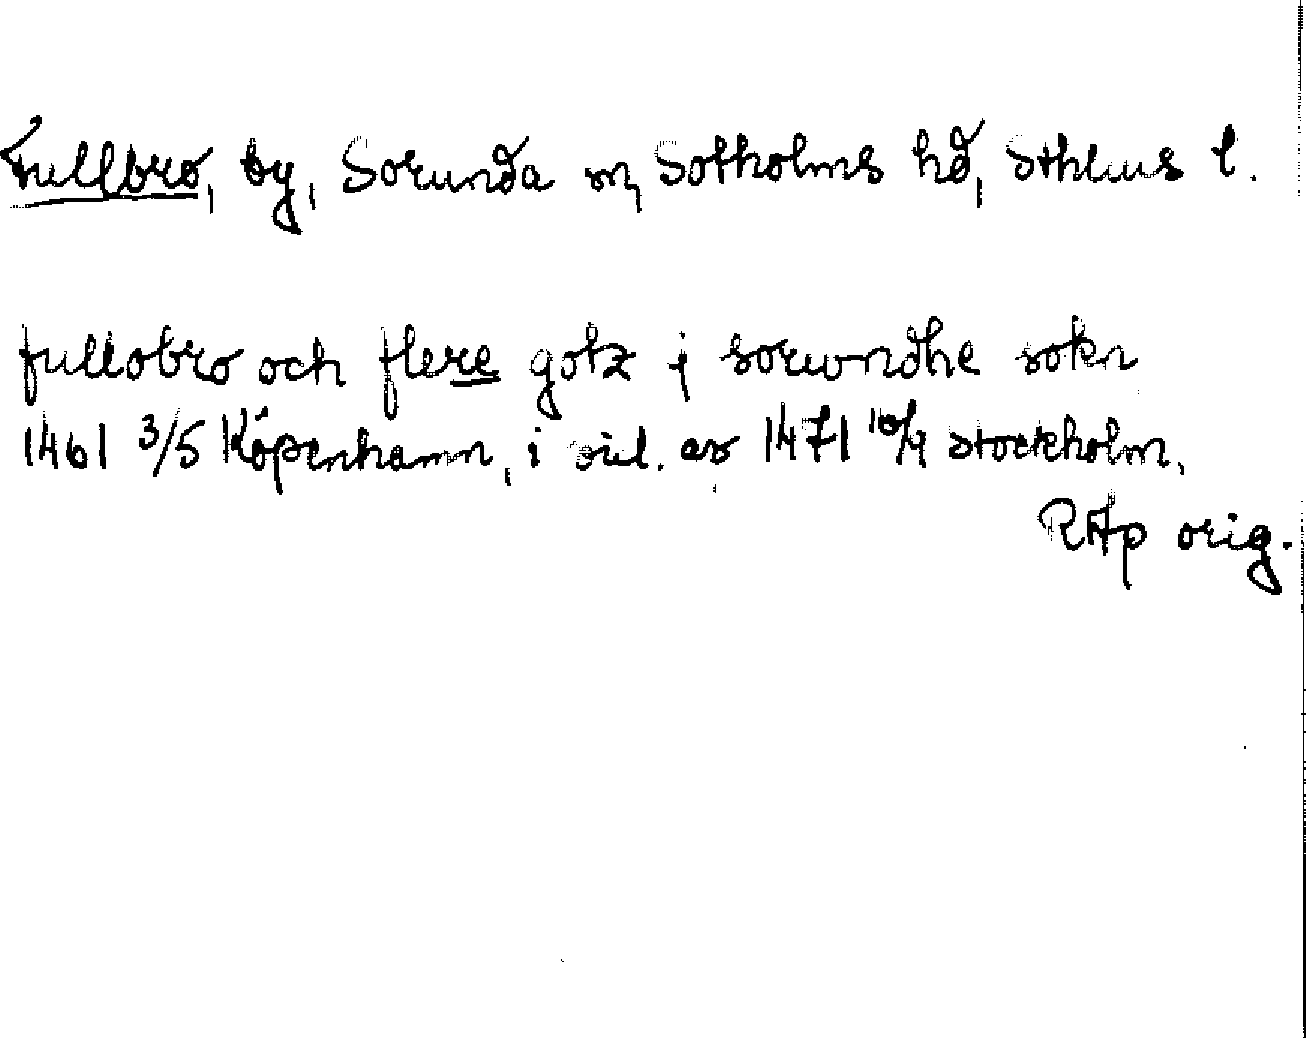 Fullbro, by, Sorunda sn, Sotholms hd, Sthlms l.
fullobro och flere gotz j sorwndhe sokn
1461 3/5 Köpenhamn, i vid. av 1471 10/9 Stockholm.
RAp orig.